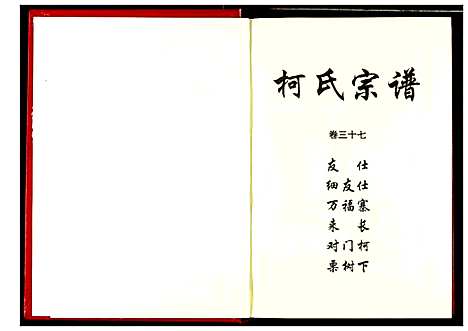 柯氏宗谱
卷三十七
友仕
细友仕
万福寨
来长
对门柯
栗树下